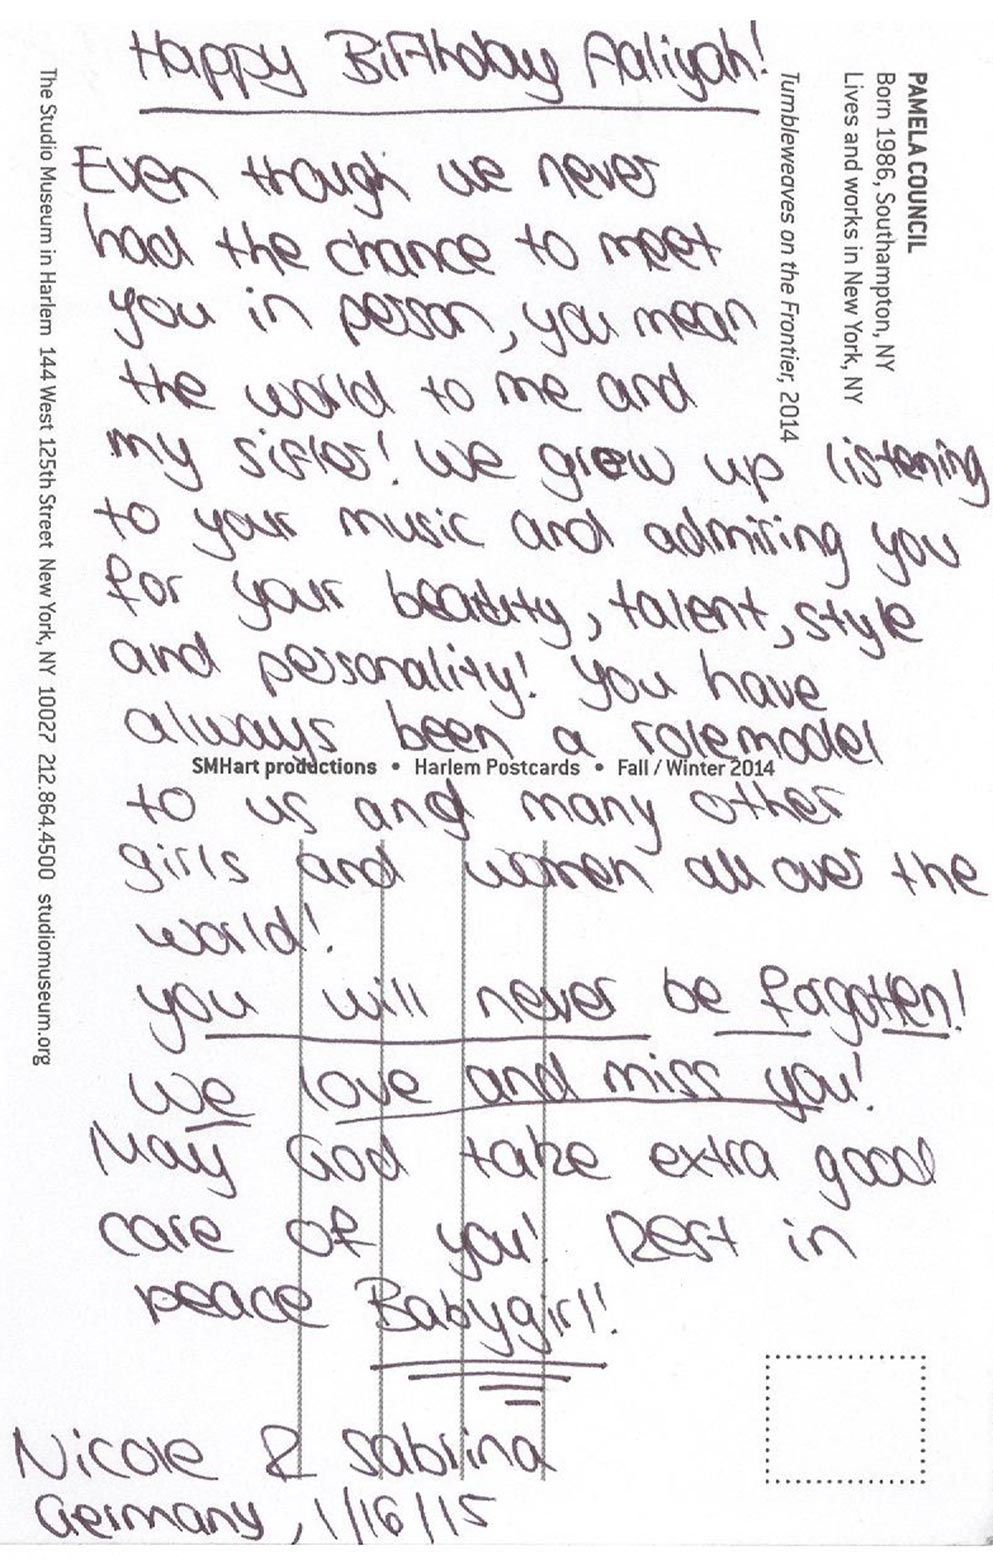 Happy Birthday Aaliyah!
Even though we never
had the chance to meet
you in person, you mean
the world to me and
my sister! We grew up listening
to your music and admiring you
for your beauty, talent, style
and personality! You have
always been a rolemodel
to us and many other
girls and women all over the
world!
you will never be forgotten!
We love and miss you!
May God take extra good
care of you! Rest in
peace Babygirl!
Nicole & Sabrina
Germany, 1/16/15
PAMELA COUNCIL
Born 1986, Southampton, NY
Lives and works in New York, NY
Tumbleweaves on the Frontier, 2014
SMHart productions • Harlem Postcards • Fall / Winter 2014
The Studio Museum in Harlem 144 West 125th Street New York, NY 10027 212.864.4500 studiomuseum.org